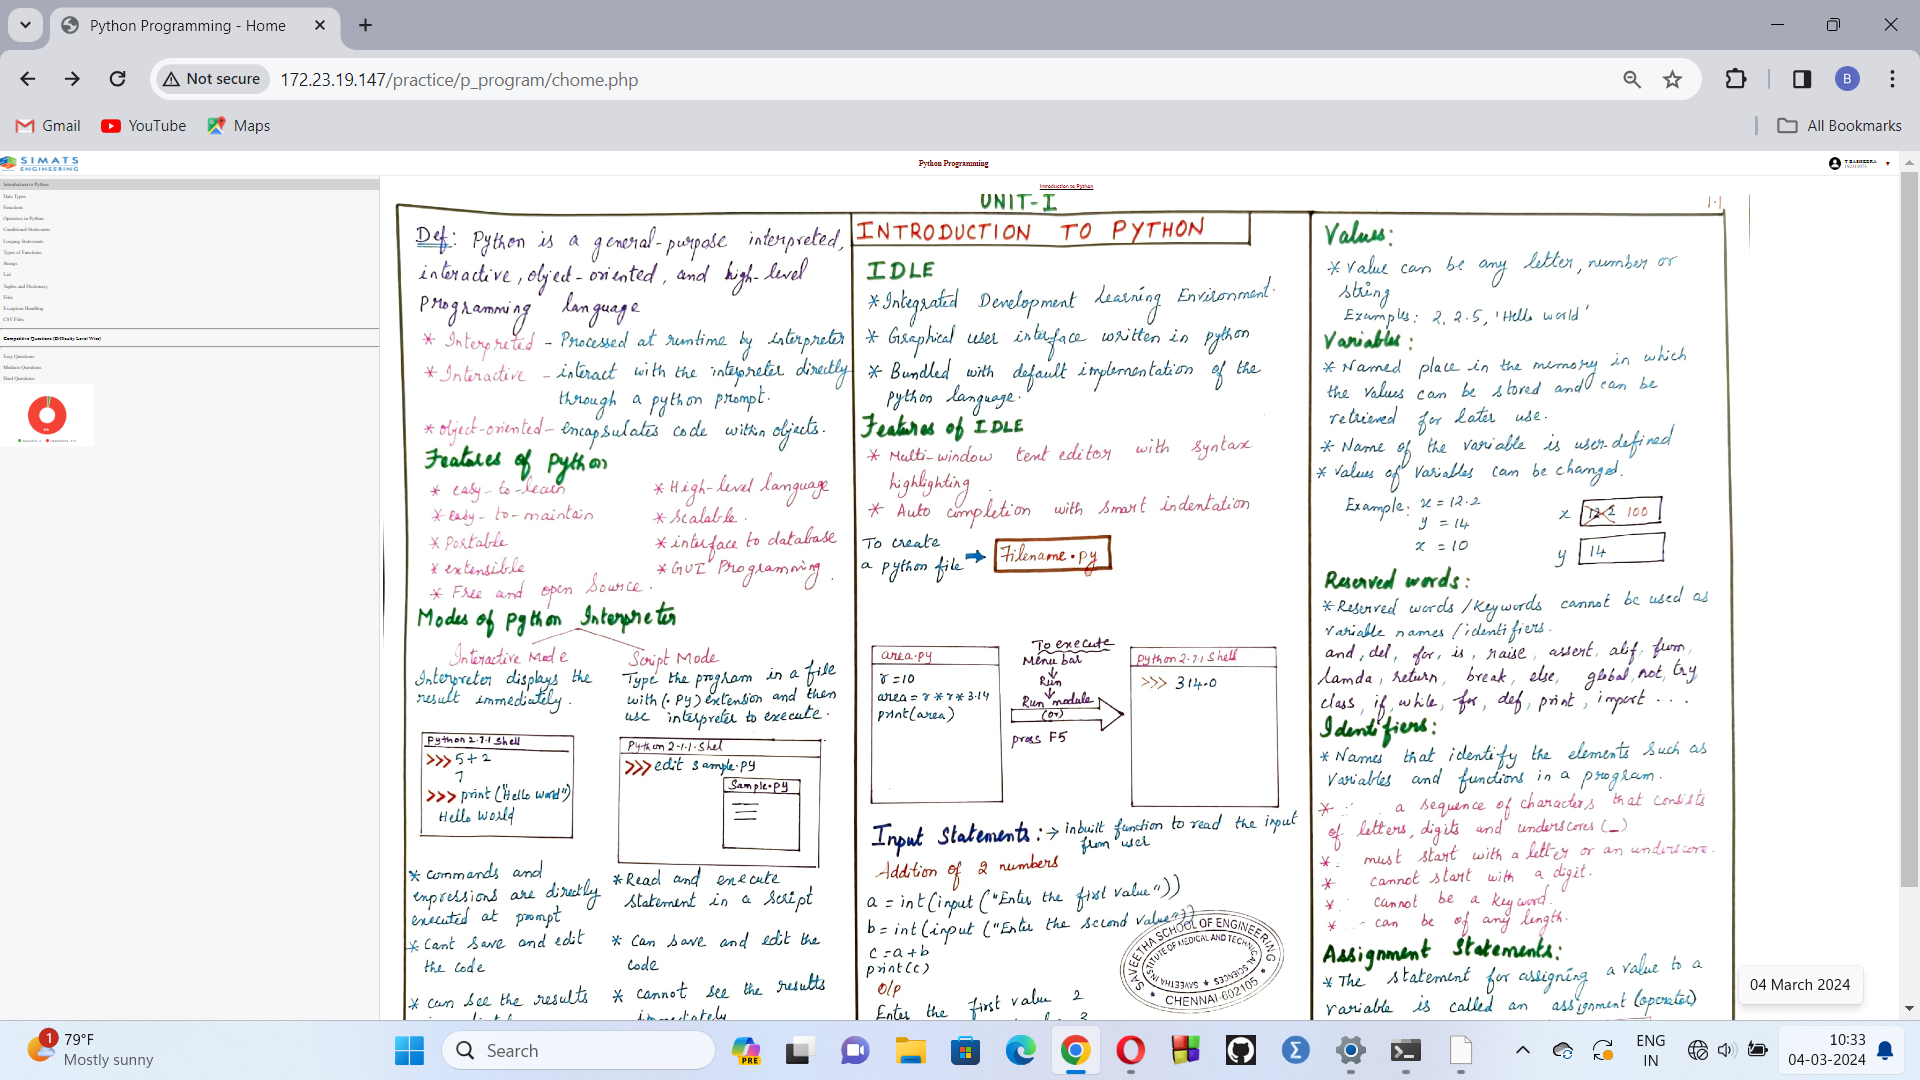 Python Programming - Home
Not secure
172.23.19.147/practice/p_program/chome.php
B
Gmail
YouTube
Maps
All Bookmarks
SIMATS
ENGINEERING
Python Programming
Introduction to Python
Data Types
Functions
Operators in Python
Conditional Statements
Looping Statements
Types of Functions
Strings
List
Tuples and Dictionary
Files
Exception Handling
CSV Files
Competitive Questions (Difficulty Level Wise)
Easy Questions
Medium Questions
Hard Questions
Introduction to Python
UNIT-I
1.1
Def: Python is a general-purpose interpreted,
interactive, object-oriented, and high-level
Programming language
* Interpreted - Processed at runtime by interpreter
* Interactive - interact with the interpreter directly
through a python prompt.
* object-oriented - encapsulates code within objects.
Features of Python
* easy-to-learn
* easy-to-maintain
* Portable
* extensible
* Free and open Source.
* High-level language
* Scalable.
* interface to database
* GUI Programming.
Modes of Python Interpreter
Interactive Mode
Interpreter displays the
result immediately.
Script Mode
Type the program in a file
with (.py) extension and then
use interpreter to execute.
Python 2.7.1 Shell
>>> 5+2
7
>>> print ("Hello world")
Hello World
Python 2.1.1.Shel
>>> edit sample.py
Sample.py
* Commands and
expressions are directly
executed at prompt
* Cant save and edit
the code
* Can see the results
* Read and execute
statement in a script
* Can save and edit the
code
* cannot see the results
immediately
INTRODUCTION TO PYTHON
IDLE
* Integrated Development Learning Environment.
* Graphical user interface written in python
* Bundled with default implementation of the
python language.
Features of IDLE
* Multi-window text editor with syntax
highlighting.
* Auto completion with smart indentation
To create
a python file
Filename.py
area.py
r=10
area = r*r*3.14
print(area)
To execute
Menu bar
Run
Run module
(or)
press F5
Python 2.7.1 Shell
>>> 314.0
Input Statements: → inbuilt function to read the input
from user
Addition of 2 numbers
a = int(input ("Enter the first value"))
b = int(input ("Enter the second value"))
c = a+b
print(c)
O/P
Enter the first value 2
SAVEETHA SCHOOL OF ENGINEERING
SAVEETHA INSTITUTE OF MEDICAL AND TECHNICAL SCIENCES
CHENNAI-602105
Values:
* Value can be any letter, number or
string
Examples: 2, 2.5, 'Hello world'
Variables:
* Named place in the memory in which
the values can be stored and can be
retrieved for later use.
* Name of the variable is user-defined
* Values of Variables can be changed.
Example: x = 12.2
y = 14
x = 10
x 12.2 100
y 14
Reserved words:
* Reserved words/keywords cannot be used as
variable names/identifiers.
and, del, for, is, raise, assert, elif, from,
lamda, return, break, else, global, not, try
class, if, while, for, def, print, import ...
Identifiers:
* Names that identify the elements such as
variables and functions in a program.
* a sequence of characters that consists
of letters, digits and underscores (_)
* must start with a letter or an underscore.
* cannot start with a digit.
* cannot be a keyword.
* can be of any length.
Assignment Statements:
* The statement for assigning a value to a
variable is called an assignment (operator)
04 March 2024
1
79°F
Mostly sunny
Search
PRE
ENG
IN
10:33
04-03-2024